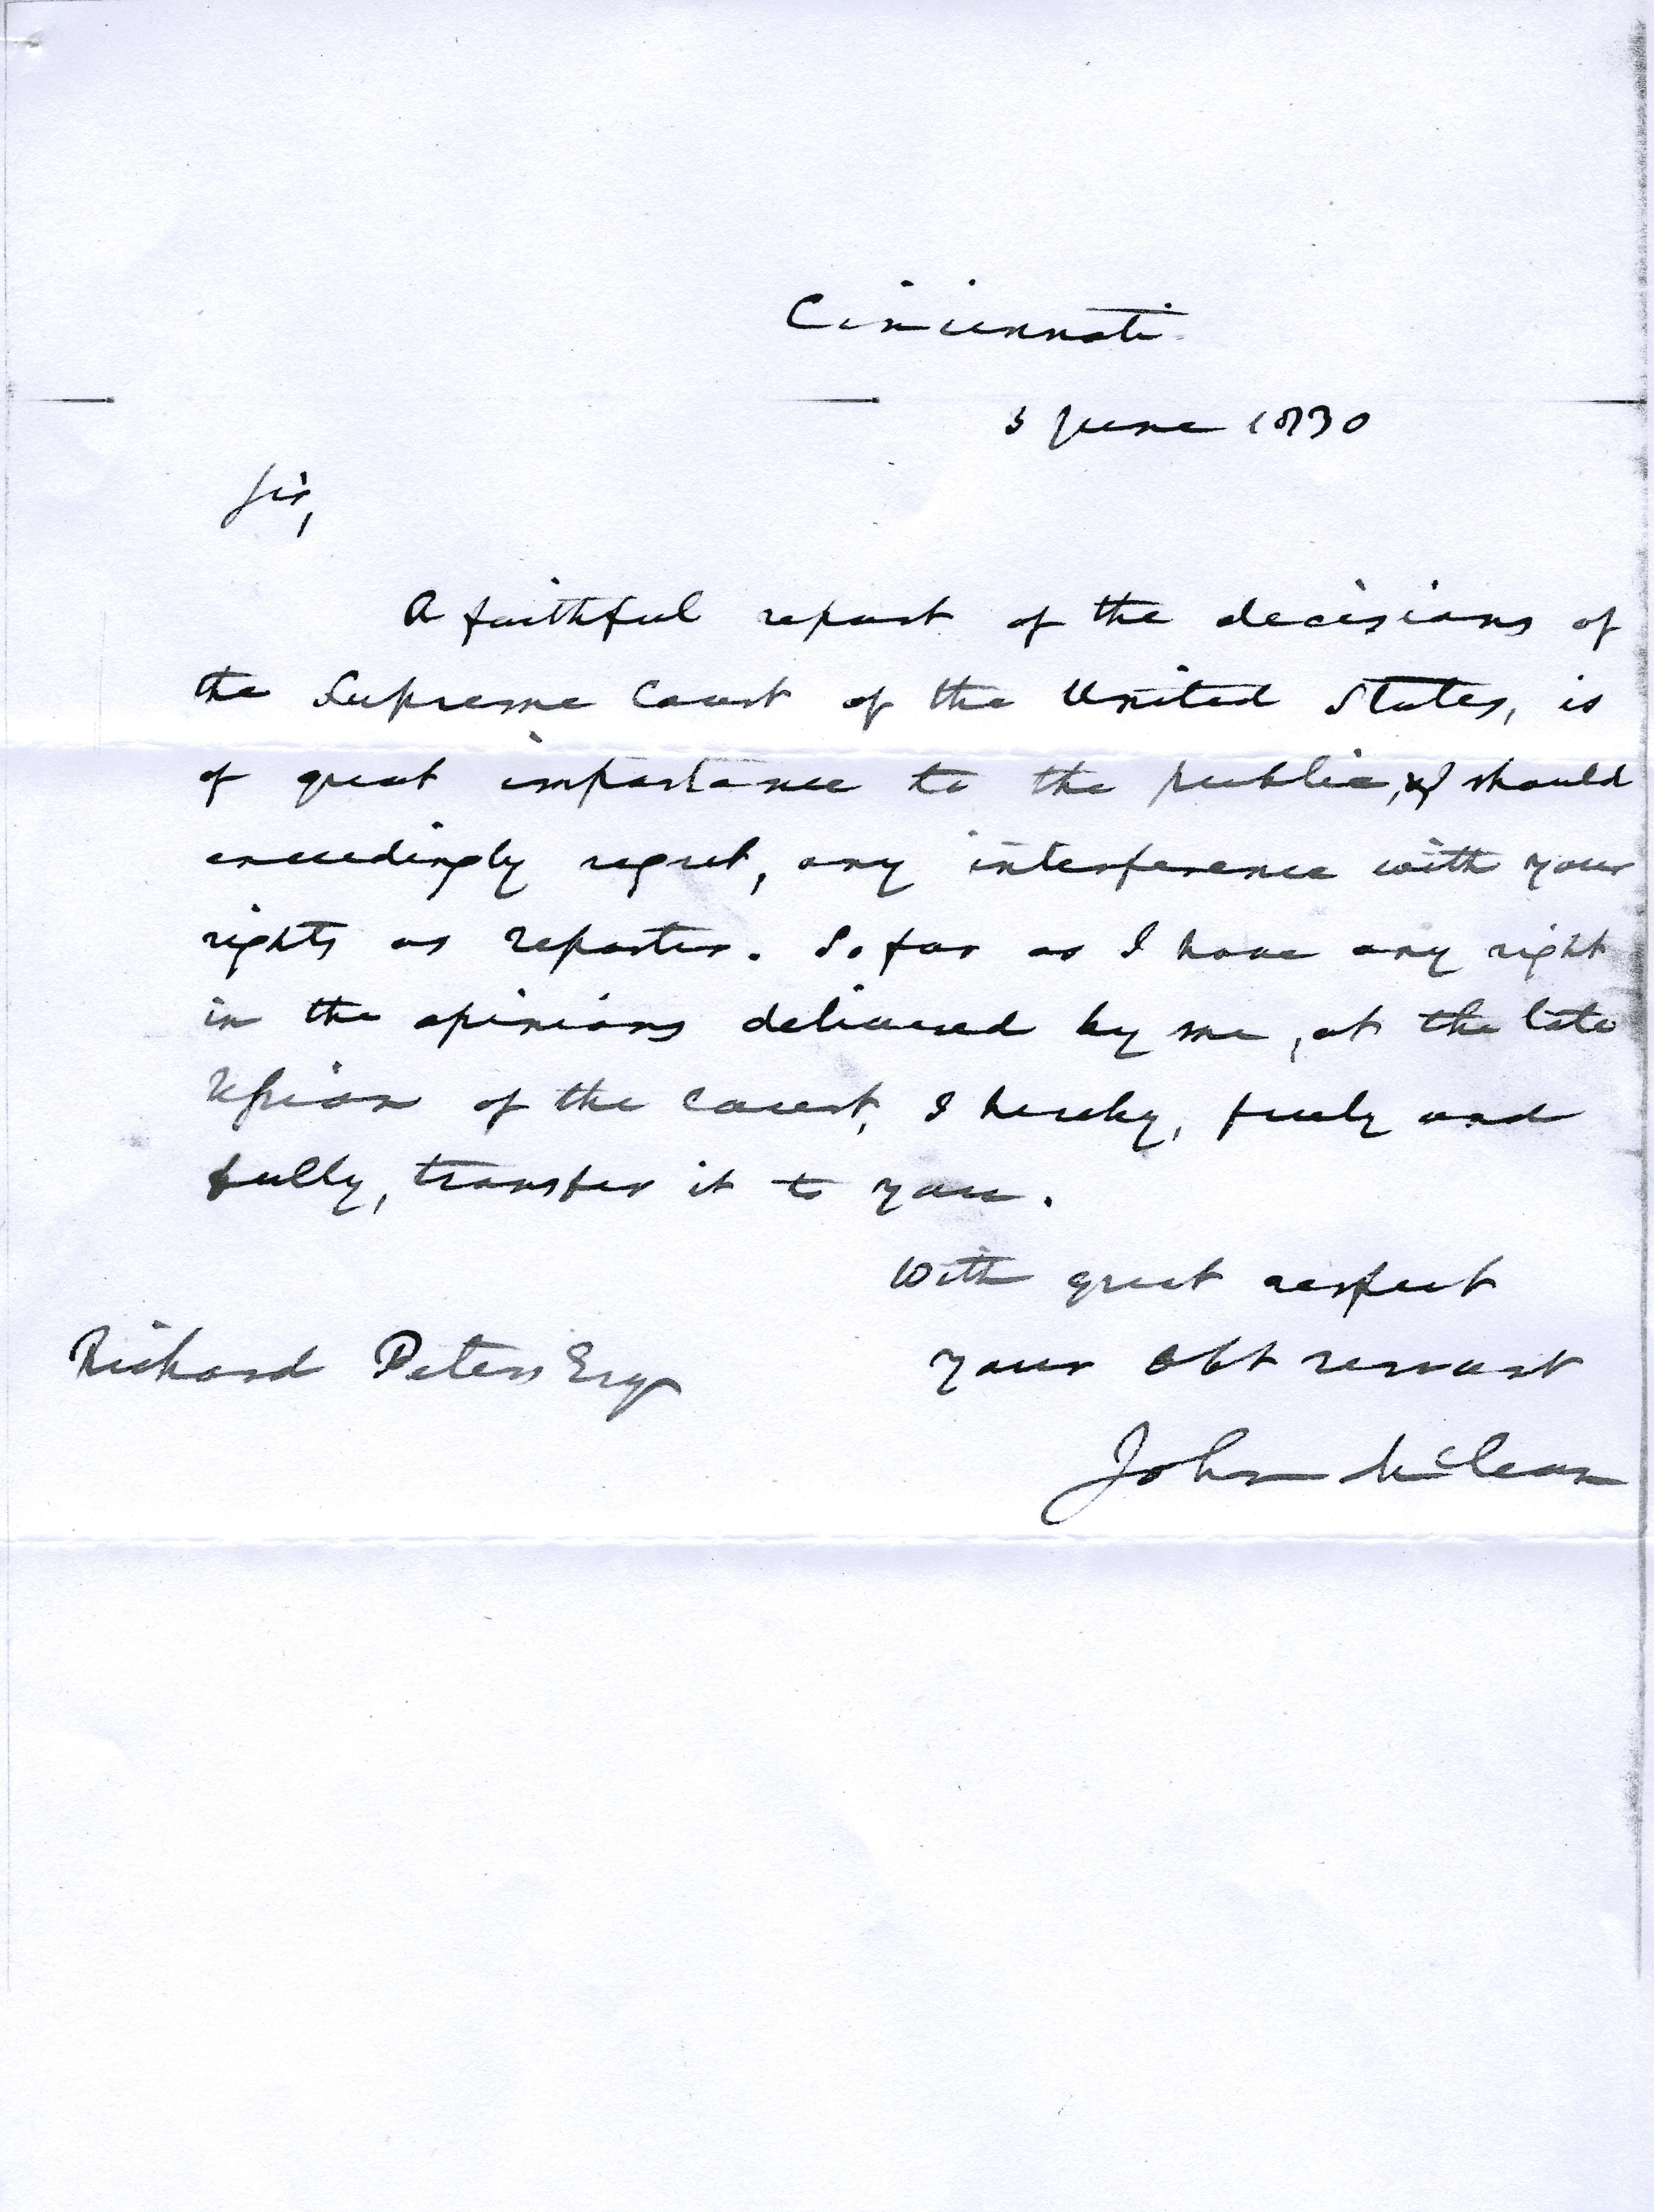 Cincinnati
3 June 1830
Sir,
A faithful report of the decisions of
the Supreme Court of the United States, is
of great importance to the public, & I should
exceedingly regret, any interference with your
rights as reporter. So far as I have any right
in the opinions delivered by me, at the late
session of the Court, I hereby, freely and
fully, transfer it to you.
With great respect
your obt servant
Richard Peters Esqr
John McLean